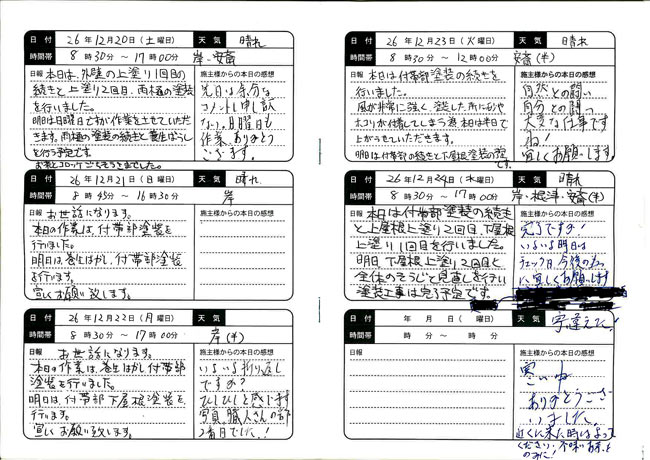 日付 26年12月20日(土曜日) 天気 晴れ
時間帯 8時30分〜17時00分 岸、安斎
日報 本日は、外壁の上塗り1回目の
続きと上塗り2回目、雨樋の塗装
を行いました。
明日は日曜日ですが作業をさせていただ
きます。雨樋の塗装の続きと養生ばらし
を行う予定です。
施主様からの本日の感想
先日は余分な
コメント申し訳
ない。日曜日も
作業、ありがとう
ございます。
日付 26年12月21日(日曜日) 天気 晴れ
時間帯 8時45分〜16時30分 岸
日報 お世話になります。
本日の作業は、付帯部塗装を
行いました。
明日は、養生はがし、付帯部塗装
を行ます。
宜しくお願い致します。
施主様からの本日の感想
日付 26年12月22日(月曜日) 天気
時間帯 8時30分〜17時00分 岸(半)
日報 お世話になります。
本日の作業は、養生はがし付帯部
塗装を行いました。
明日は、付帯部、下屋根塗装を、
行います。
宜しくお願い致します。
施主様からの本日の感想
いよいよ折り返し
ですの?
ひしひしと感じます
写真、職人さんの部
2番目でした!
日付 26年12月23日(火曜日) 天気 晴れ
時間帯 8時30分〜12時00分 安斎(半)
日報 本日は付帯部塗装の続きを
行いました。
風が非常に強く、塗装した所に砂や
ホコリが付着してしまう為、本日は半日で
上がらせていただきます。
明日は付帯部の続きと下屋根塗装の予定
です。
施主様からの本日の感想
自然との闘い
自分との闘い
大変な仕事です
ね!
宜しくお願いします。
日付 26年12月24日(水曜日) 天気 晴れ
時間帯 8時30分〜17時00分 岸・根津・安斎(半)
日報 本日は付帯部塗装の続き
と上屋根上塗り2回目、下屋根
上塗り1回目を行いました。
明日、下屋根上塗り2回目と
全体のそうじと見直しを行い
塗装工事は完了予定です。
施主様からの本日の感想
完了ですか!
いよいよ明日は
チェック日 今後の為
に宜しくお願いします
日付 年 月 日( 曜日) 天気 字違えた!
時間帯 時 分〜 時 分
日報
施主様からの本日の感想
寒いね
ありがとうござ
いました。
近くに来た時はよって
ください、不味いお茶、
のみに!